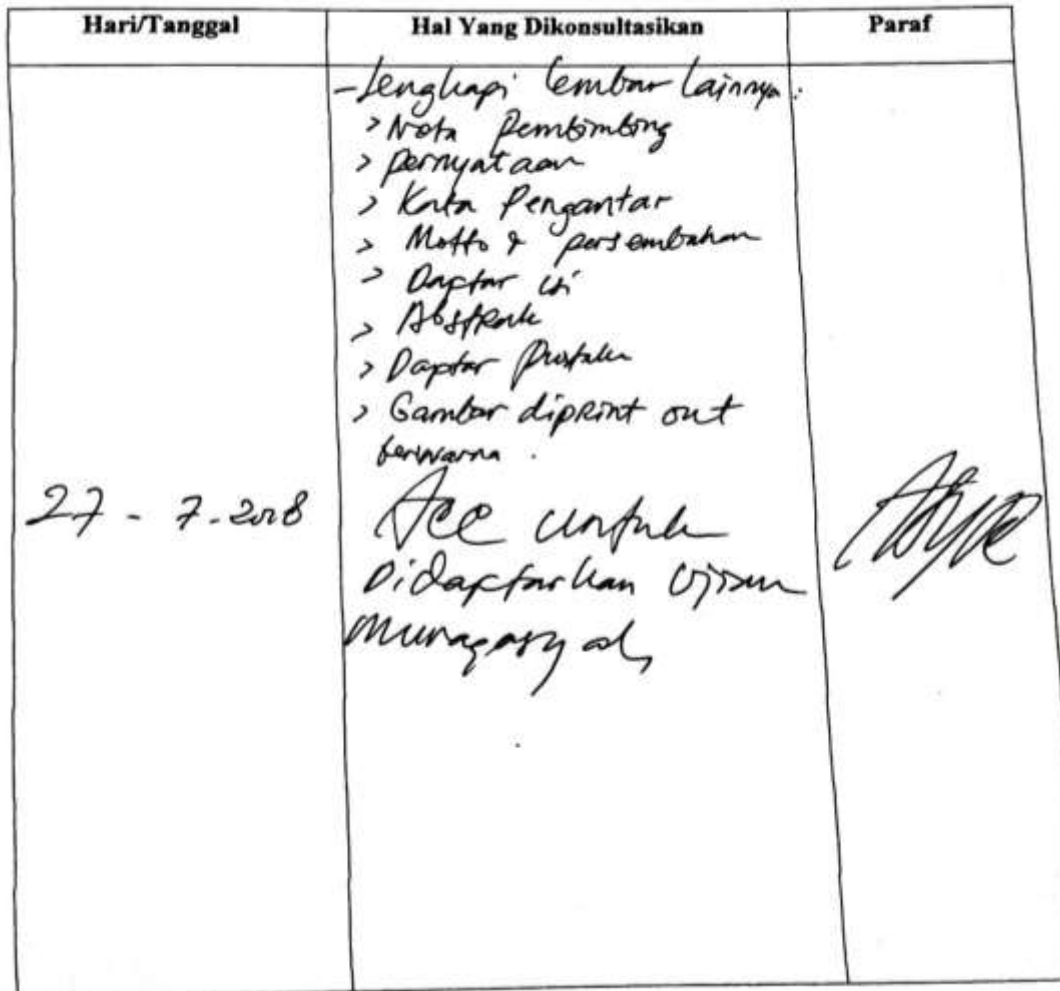 Hari/Tanggal Hal Yang Dikonsultasikan Paraf
- Lengkapi lembar lainnya :
> Nota Pembimbing
> pernyataan
> Kata Pengantar
> Motto & persembahan
> Daptar isi
> Abstrak
> Daptar Pustaka
> Gambar diprint out
berwarna .
27 - 7 - 2018 Acc untuk
Didaptarkan Ujian
Munaqasyah